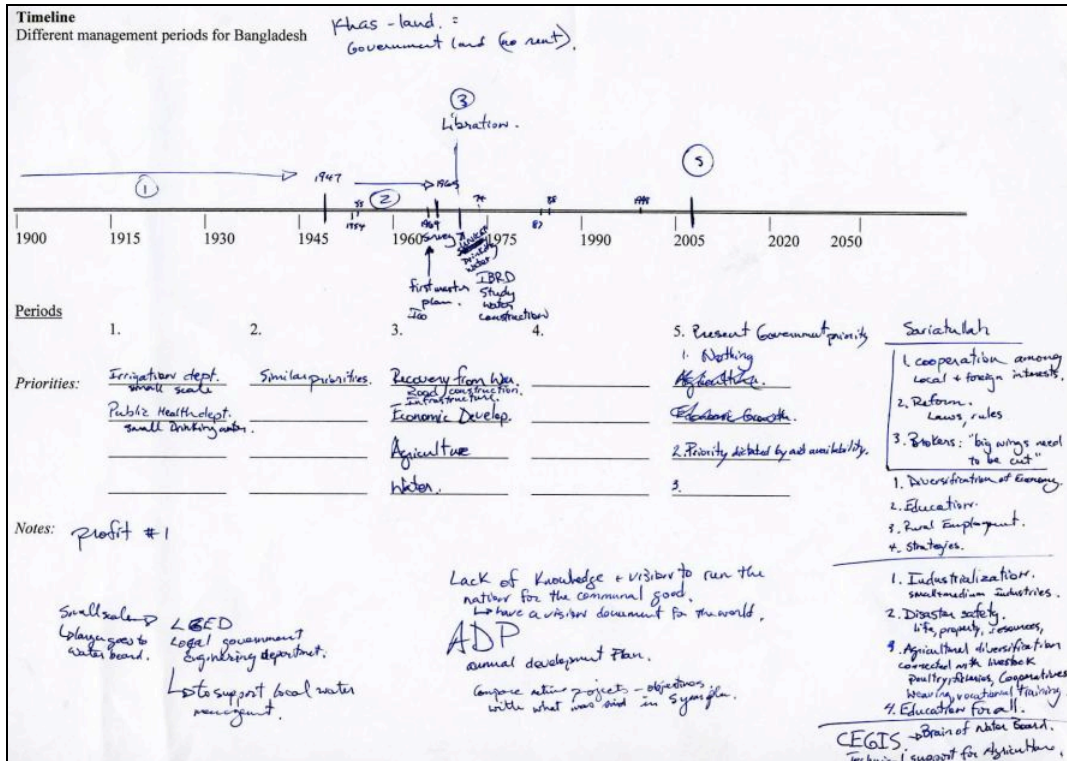 Timeline
Different management periods for Bangladesh
Khas-land. =
Government land (no rent).
③
Libration.
⑤
①
1947
②
1965
55
74
88
1998
1954
1964
87
1900
1915
1930
1945
1960
1975
1990
2005
2020
2050
Survey
Drinking
water
first master
plan.
IBRD
Study
water
construction
Periods
1.
2.
3.
4.
5. Present Government priority
1. Nothing
Priorities:
Irrigation dept.
small scale
Similar priorities.
Recovery from War.
Road construction.
Infrastructure.
Agriculture.
Public Health dept.
small Drinking water.
Economic Develop.
Economic Growth.
Agriculture
2. Priority dictated by aid availability.
Water.
3.
Sariatullah
1. cooperation among
Local + foreign interests.
2. Reform.
Laws, rules
3. Brokers: "big wings need
to be cut"
1. Diversification of Economy.
2. Education.
3. Rural Employment.
4. Strategies.
1. Industrialization.
small medium industries.
2. Disaster safety.
life, property, resources,
3. Agricultural diversification
connected with livestock
poultry, fisheries, Cooperatives
Weaving, vocational training.
4. Education for all.
CEGIS → Brain of Water Board.
Technical support for Agriculture,
Notes:
profit #1
Small scale →
↳ larger goes to
water board.
LGED
Local government
engineering department.
↳ to support local water
management.
Lack of Knowledge + vision to run the
nation for the communal good.
↳ have a vision document for the world.
ADP
annual development Plan.
Compare projects - objectives
with what was said in